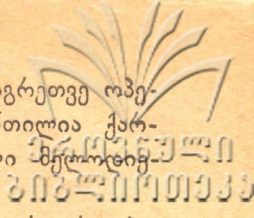 გრეთვე ოპე-
თილია ქარ-
ი მელოდიე-
ეროვნული
ბიბლიოთეკა